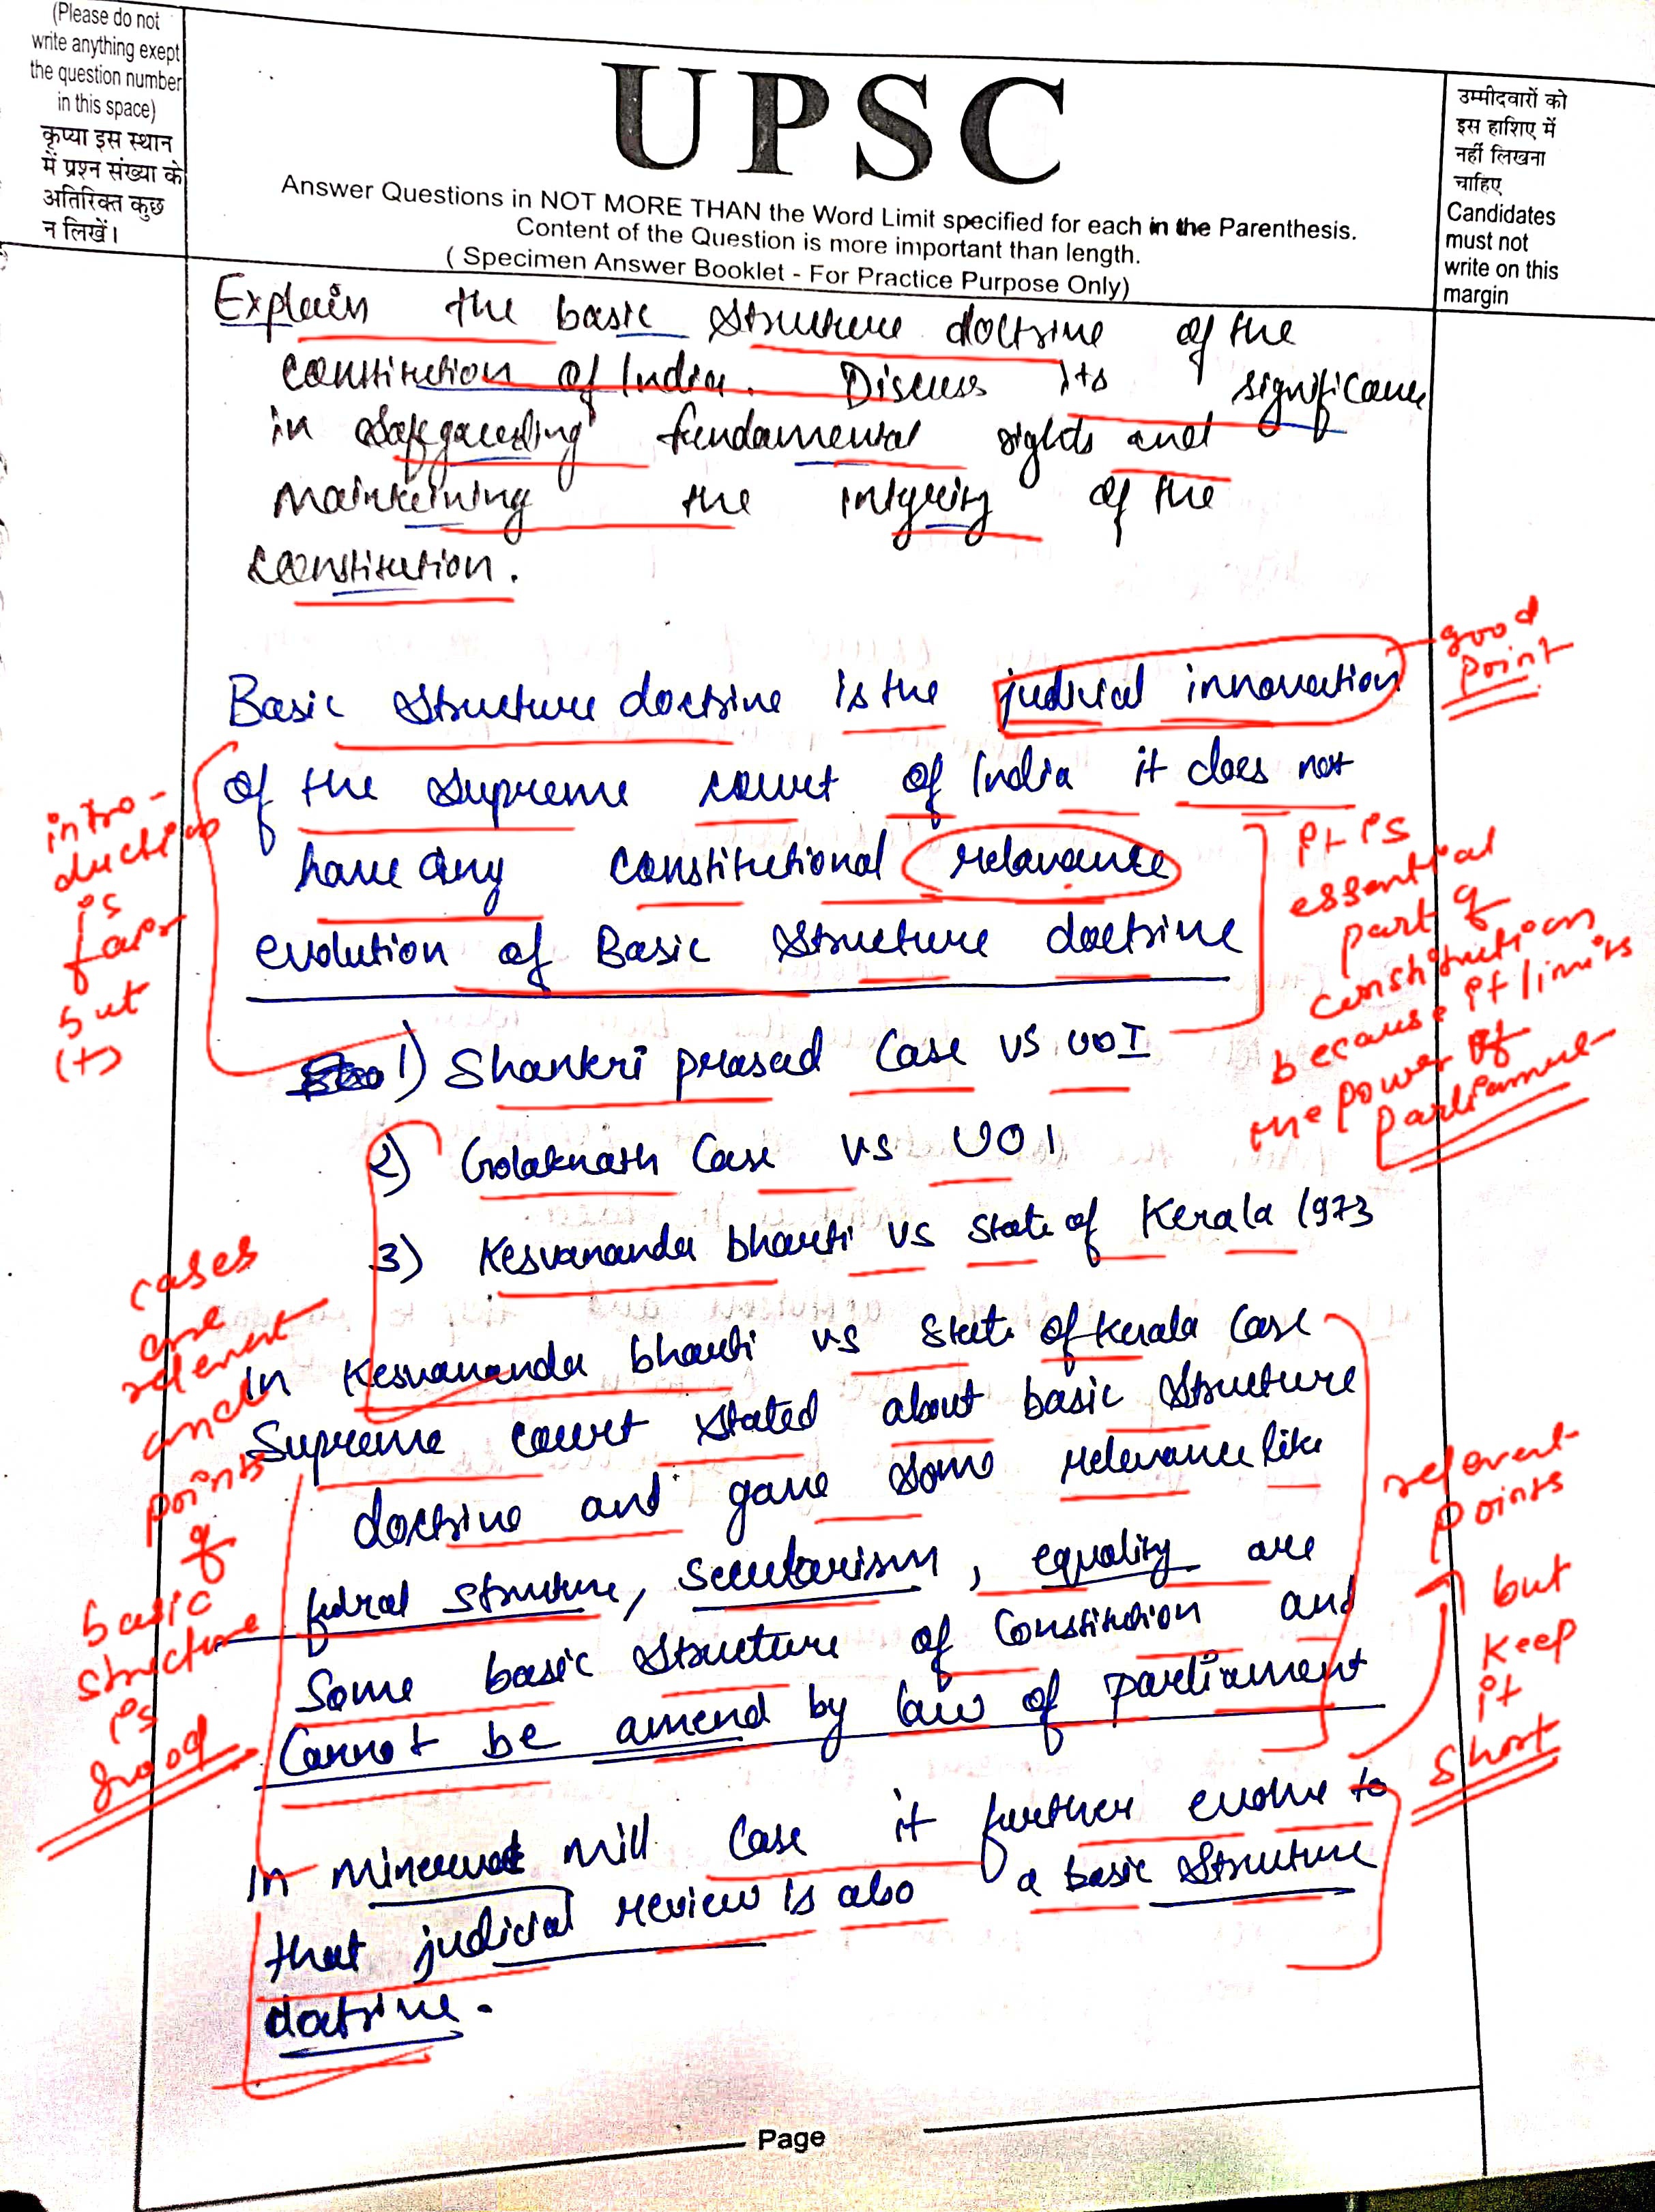 (Please do not
write anything exept
the question number
in this space)
कृप्या इस स्थान
में प्रश्न संख्या के
अतिरिक्त कुछ
न लिखें।
UPSC
Answer Questions in NOT MORE THAN the Word Limit specified for each in the Parenthesis.
Content of the Question is more important than length.
( Specimen Answer Booklet - For Practice Purpose Only)
उम्मीदवारों को
इस हाशिए में
नहीं लिखना
चाहिए
Candidates
must not
write on this
margin
Explain the basic structure doctrine of the
constitution of India. Discuss its significance
in safeguarding fundamental rights and
maintaining the integrity of the
constitution.
Basic structure doctrine is the judicial innovation
of the supreme court of India it does not
have any constitutional relavance
evolution of Basic structure doctrine
1) Shankri prasad case vs UOI
2) Golaknath Case vs UOI
3) Kesvananda bharti vs state of Kerala 1973
In Kesvananda bharti vs state of kerala case
Supreme court stated about basic structure
doctrine and gave some relevance like
fedral structure, secularism, equality are
some basic structure of constitution and
cannot be amend by law of parliament
In minerva mill case it further evolve to
that judicial review is also a basic structure
doctrine.
good
point
intro-
duction
is
fair
but
(+)
it is
essential
part of
constitution
because it limits
the power of
parliament
cases
are
relevent
and
points
of
basic
structure
is
good
relevent
points
but
keep
it
short
Page